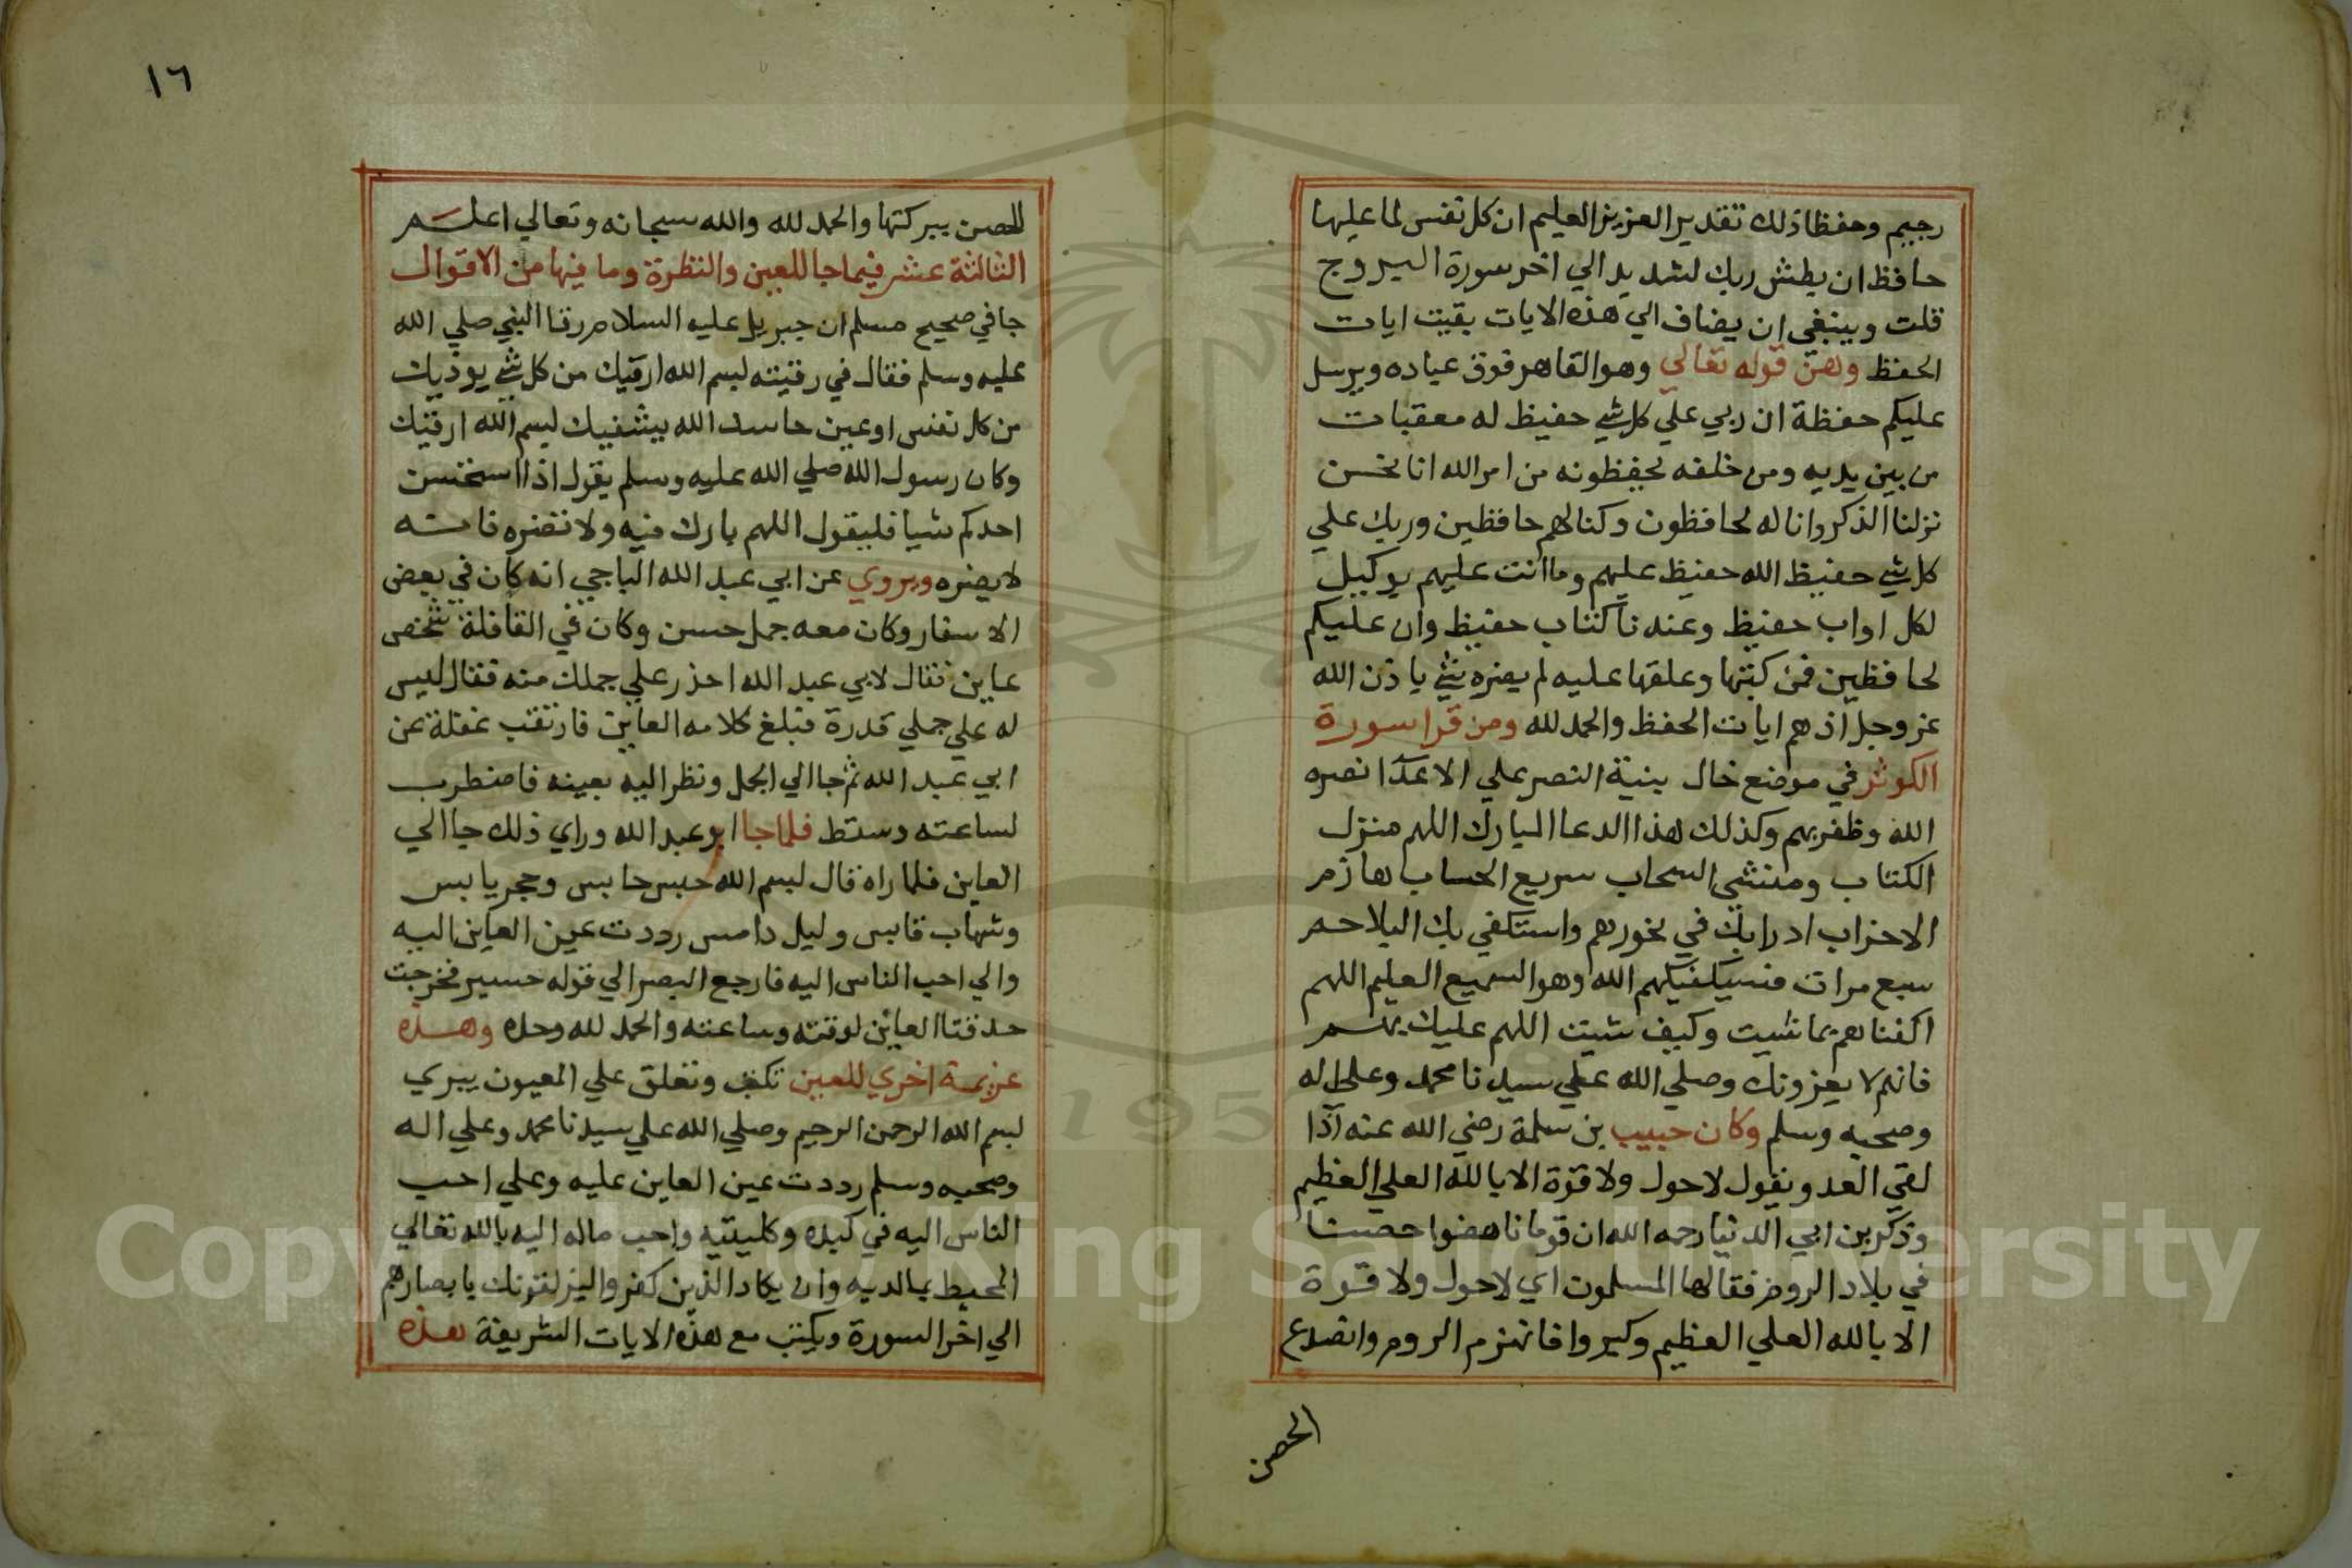 رجيم وحفظا ذلك تقدير العزيز العليم ان كل نفس لما عليها
حافظ ان بطش ربك لشديد الي اخر سورة البروج
قلت وينبغي ان يضاف الي هذه الايات بقيت ايات
الحفظ وهن قوله تعالي وهو القاهر فوق عباده ويرسل
عليكم حفظة ان ربي علي كل شي حفيظ له معقبات
من بين يديه ومن خلفه يحفظونه من امر الله انا نحن
نزلنا الذكر وانا له لحافظون وكنا لهم حافظين وربك علي
كل شي حفيظ الله حفيظ عليهم وما انت عليهم بوكيل
لكل اواب حفيظ وعندنا كتاب حفيظ وان عليكم
لحافظين فمن كتبها وعلقها عليه لم يضره شي باذن الله
عز وجل اذ هم ايات الحفظ والحمد لله ومن قرا سورة
الكوثر في موضع خال بنية النصر علي الاعدا نصره
الله وظفر بهم وكذلك هذا الدعا المبارك اللهم منزل
الكتاب ومنشي السحاب سريع الحساب هازم
الاحزاب ادرا بك في نحورهم واستكفي بك البلا حم
سبع مرات فسيكفيكهم الله وهو السميع العليم اللهم
اكفناهم بما شيت وكيف شيت اللهم عليك بهم
فانهم لا يعجزونك وصلي الله علي سيدنا محمد وعلي اله
وصحبه وسلم وكان حبيب بن سلمة رضي الله عنه اذا
لقي العدو يقول لاحول ولا قوة الا بالله العلي العظيم
وذكر بن ابي الدنيا رحمه الله ان قوما ناهضوا حصنا
في بلاد الروم فقالها المسلمون اي لاحول ولا قوة
الا بالله العلي العظيم وكبروا فانهزم الروم وانصدع
الحصن
١٦
الحصن ببركتها والحمد لله والله سبحانه وتعالي اعلم
الثالثة عشر فيما جا للعين والنظرة وما فيها من الاقوال
جا في صحيح مسلم ان جبريل عليه السلام رقا النبي صلي الله
عليه وسلم فقال في رقيته لبسم الله ارقيك من كل شي يوذيك
من كل نفس او عين حاسد الله يشفيك لبسم الله ارقيك
وكان رسول الله صلي الله عليه وسلم يقول اذا استحسن
احدكم شيا فليقول اللهم بارك فيه ولا تضره فانه
لا يضره ويروي عن ابي عبد الله الباجي انه كان في بعض
الاسفار وكان معه جمل حسن وكان في القافلة شخص
عاين فقال لابي عبد الله احذر علي جملك منه فقال ليس
له علي جملي قدرة فبلغ كلامه العاين فارتقب غفلة عن
ابي عبد الله ثم جا الي الجمل ونظر اليه بعينه فاضطرب
لساعته وسقط فلما جا ابو عبد الله وراي ذلك جا الي
العاين فلما راه قال لبسم الله حبس حابس وحجر يابس
وشهاب قابس وليل دامس رددت عين العاين اليه
والي احب الناس اليه فارجع البصر الي قوله حسير فخرجت
حدقتا العاين لوقته وساعته والحمد لله وحده وهذه
عزيمة اخري للعين تكتب وتعلق علي المعيون يبري
لبسم الله الرحمن الرحيم وصلي الله علي سيدنا محمد وعلي اله
وصحبه وسلم رددت عين العاين عليه وعلي احب
الناس اليه في كبده وكليتيه واحب ماله اليه بالله تعالي
المحيط بمالديه وان يكاد الذين كفروا ليزلقونك بابصارهم
الي اخر السورة ويكتب مع هذه الايات الشريفة هذه
Copyright © King Saud University
195